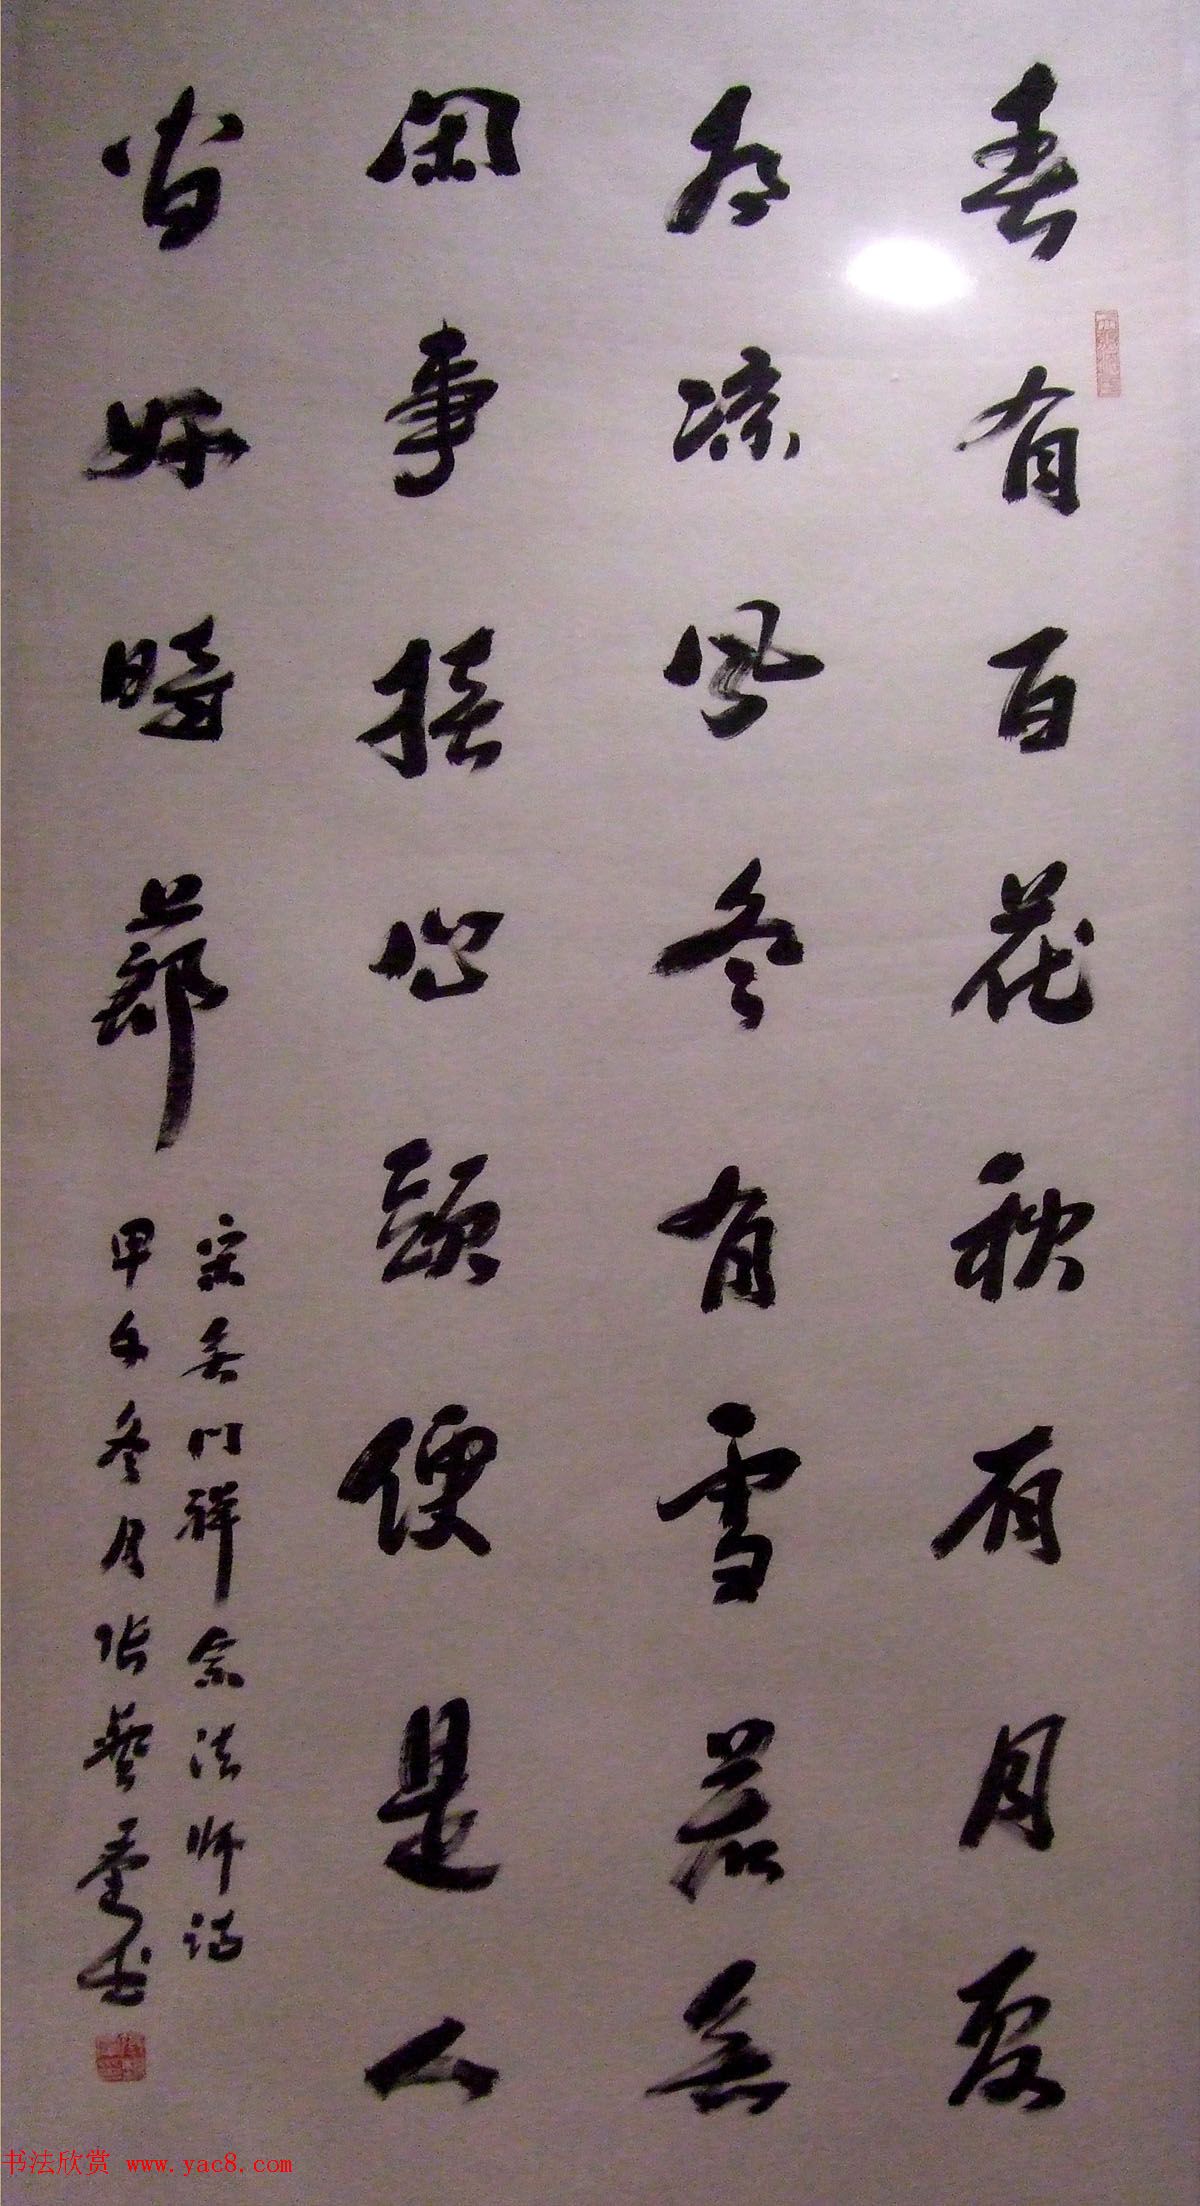 春有百花秋有月夏
有凉風冬有雪若無
閑事挂心頭便是人
間好時節
宋無门禅宗法师诗
甲午冬月张书
书法欣赏 www.yac8.com